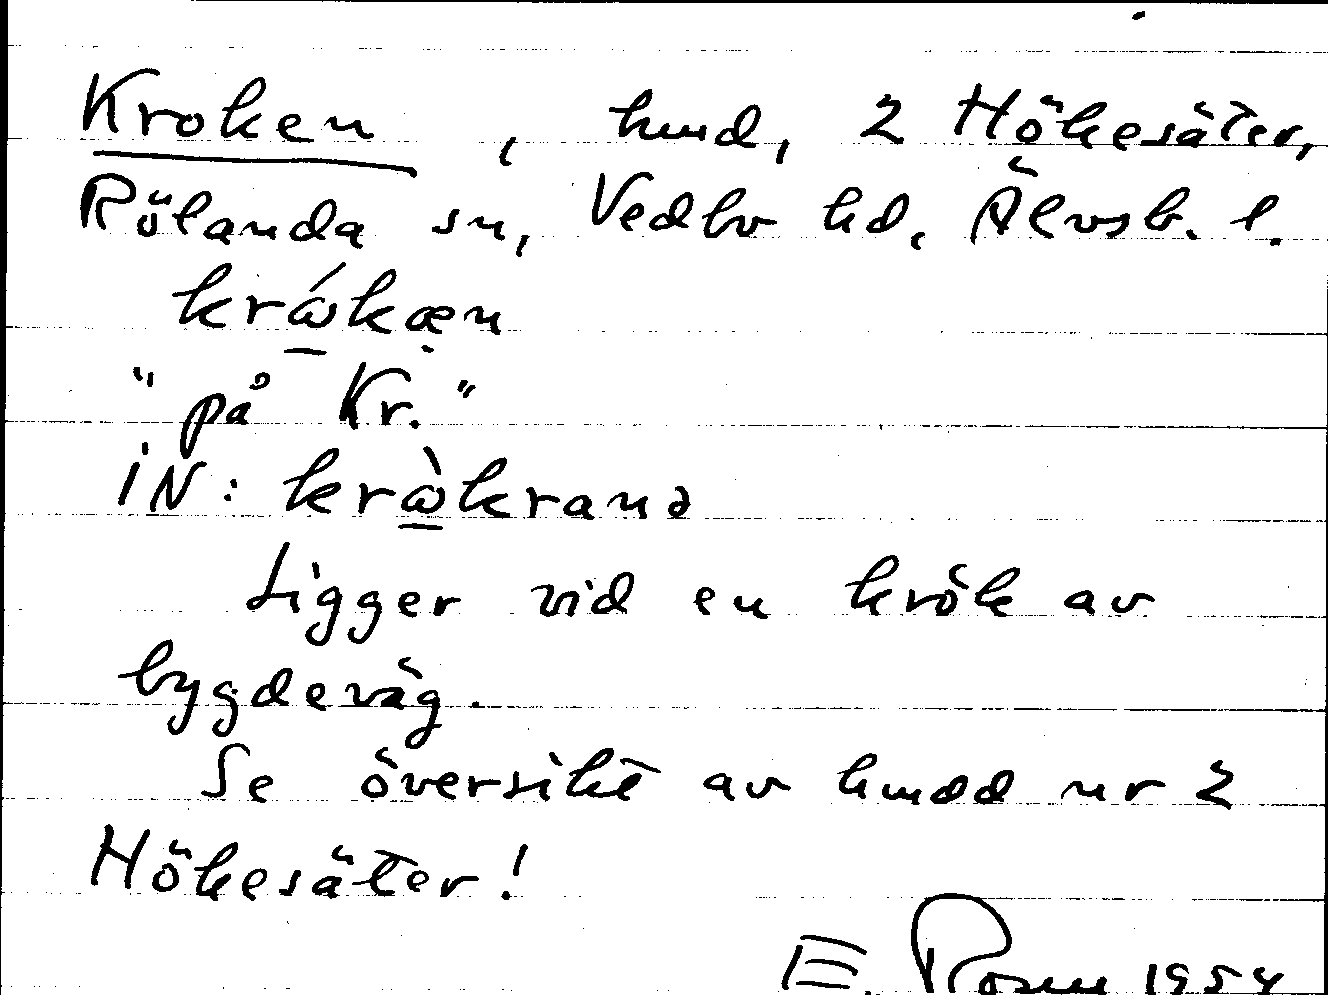 Kroken, hmd, 2 Hökesäter,
Rölanda sn, Vedbo hd, Älvsb. l.
krώkæ̣n
"på Kr."
iN: krὼkranə
Ligger vid en krök av
bygdeväg.
Se översikt av hmdd nr 2
Hökesäter!
E. Rosu 1954